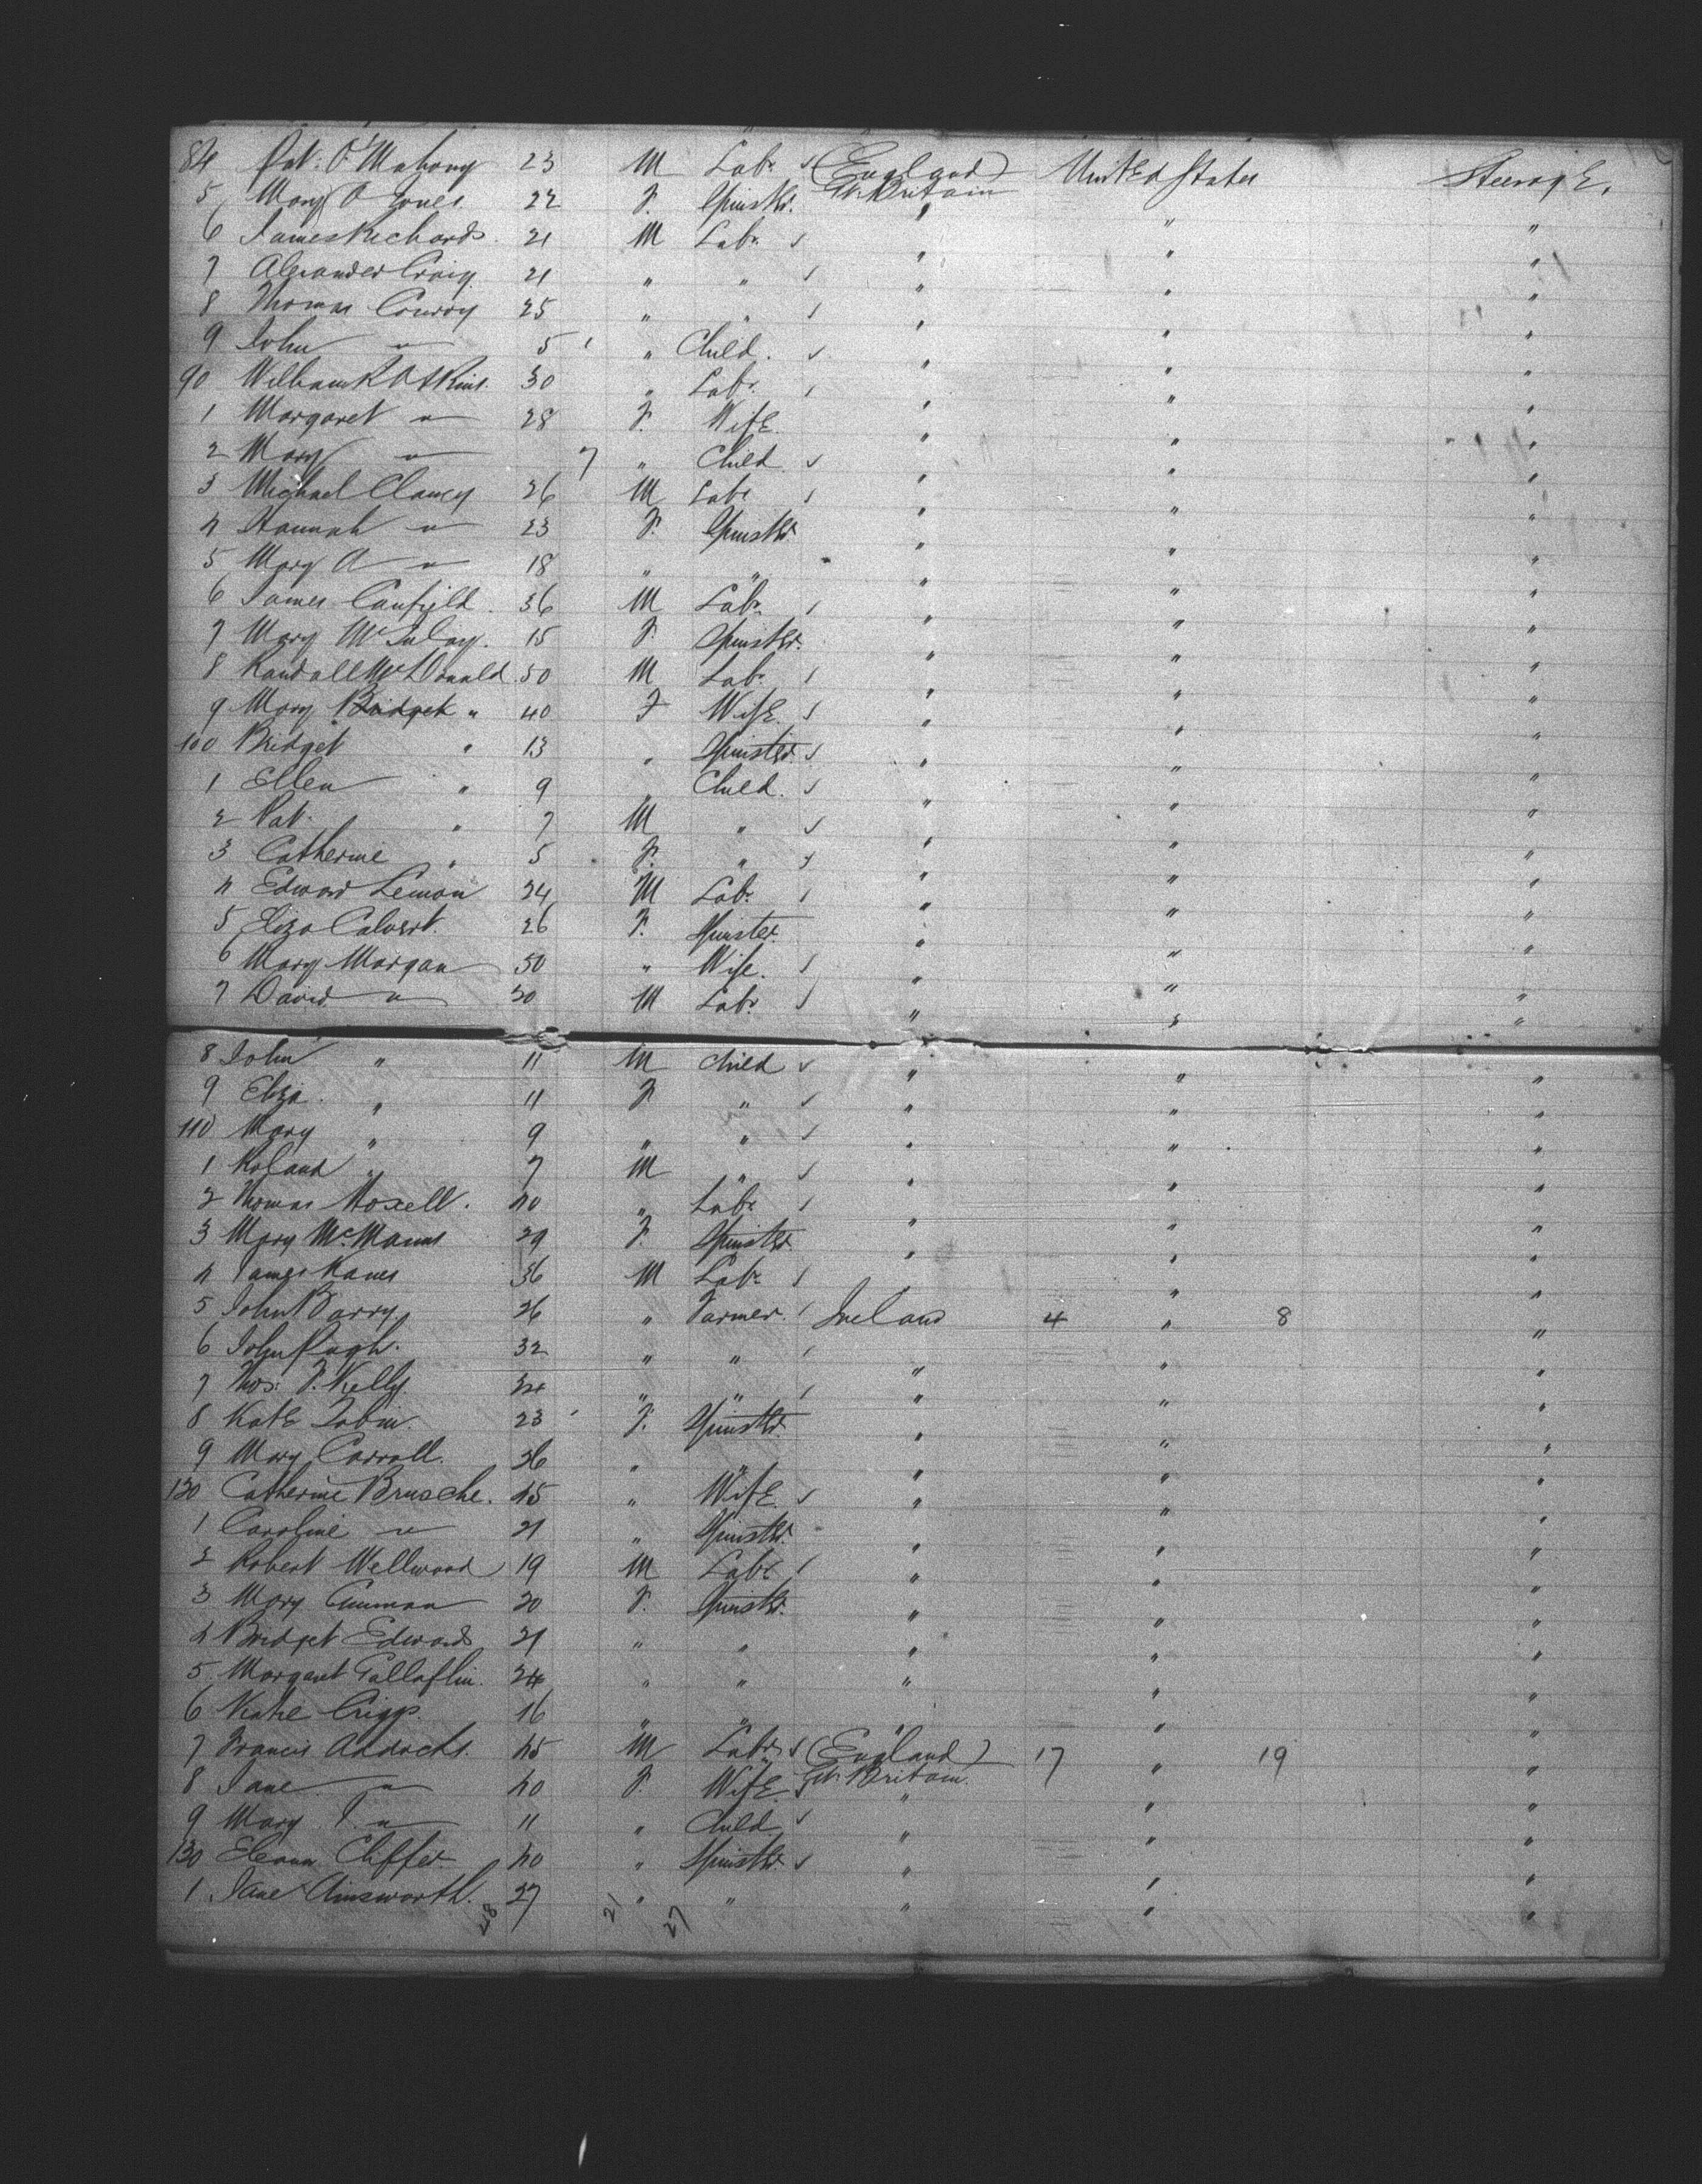 84 Pat. O'Mahony 23 M Labr ✓ (England) Gt. Britain United States Steerage.
5 Mary A Jones 22 F. Spinstr. " " "
6 James Richards. 21 M Labr ✓ " " "
7 Alexander Craig 21 " " ✓ " " "
8 Thomas Conroy 25 " " ✓ " " "
9 John " 5 " Child. ✓ " " "
90 William 30 " Labr ✓ " " "
1 Margaret " 28 F. Wife. " " "
2 Mary " 7 " Child ✓ " " "
3 Michael Clancy 26 M Labr ✓ " " "
4 Hannah " 23 F. Spinstr " " "
5 Mary A " 18 " " " " "
6 James Canfield. 36 M Labr ✓ " " "
7 Mary 15 F. Spinstr. " " "
8 Randall McDonald. 50 M Labr ✓ " " "
9 Mary Bridget " 40 F Wife. ✓ " " "
100 Bridget " 13 " Spinster ✓ " " "
1 Ellen " 9 " Child. ✓ " " "
2 Pat. " 7 M " ✓ " " "
3 Catherine " 5 F. " ✓ " " "
4 Edward Lemon 24 M Labr ✓ " " "
5 Eliza Calvert. 26 F. Spinster " " "
6 Mary Morgan 50 " Wife. ✓ " " "
7 David " 20 M Labr ✓ " " "
8 John " 11 M Child ✓ " " "
9 Eliza. " 11 F " ✓ " " "
110 Mary " 9 " " ✓ " " "
1 Roland " 7 M " ✓ " " "
2 Thomas 40 " Labr ✓ " " "
3 Mary McManus 29 F. Spinstr " " "
4 James Kanes 36 M Labr ✓ " " "
5 John Barry 26 " Farmer. ✓ Ireland 4 " 8 "
6 John Pugh. 32 " " ✓ " " "
7 Thos. F. Kelly. 34 " " ✓ " " "
8 Kate Tobin. 23 F. Spinstr. " " "
9 Mary Carroll. 26 " " " " "
120 Catherine Brusche. 45 " Wife. ✓ " " "
1 Caroline " 21 " Spinstr. " " "
2 Robert Wellwood 19 M Labr ✓ " " "
3 Mary 20 F. Spinstr. " " "
4 Bridget Edwards 21 " " " " "
5 Margaret 24 " " " " "
6 Katie Cripps. 16 " " " " "
7 Francis 45 M Labr ✓ (England) Gt. Britain. 17 " 19 "
8 Jane " 40 F. Wife ✓ " " "
9 Mary J. " 11 " Child ✓ " " "
130 40 " Spinstr ✓ " " "
1 Jane Ainsworth. 27 " " " " "
48 21 27